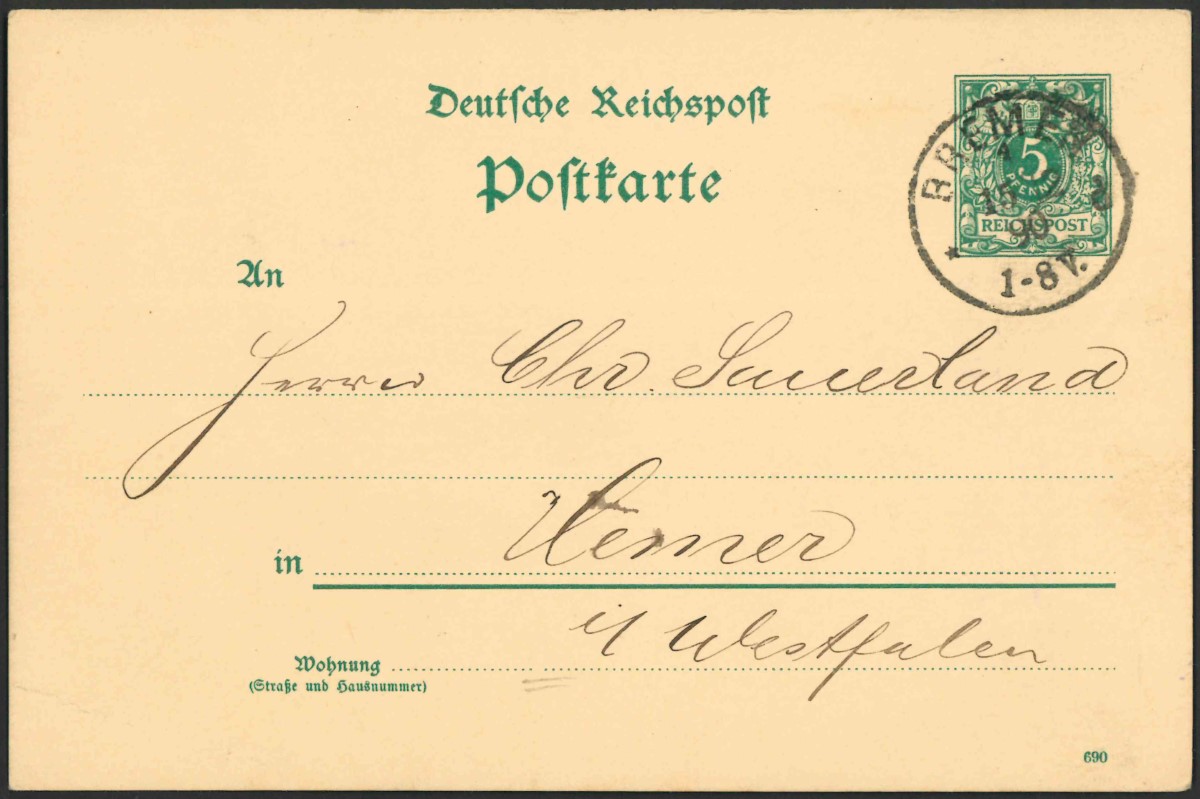 Deutsche Reichspost
Postkarte
5
PFENNIG
REICHSPOST
BREMEN
A
15
2
90
1-8 V.
*
An
Herrn Chr. Sauerland
in Hemer
i/ Westfalen
Wohnung
(Straße und Hausnummer)
690